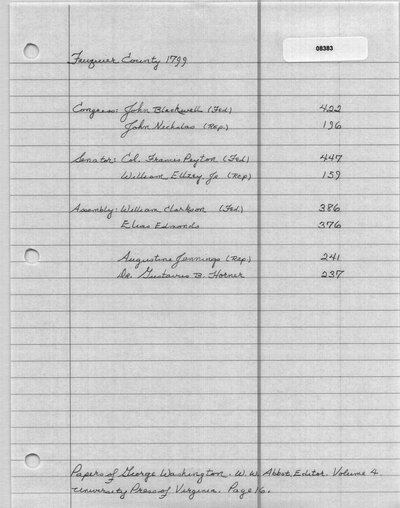 08383
Fauquier County 1799
Congress: John Blackwell (Fed) 422
John Nicholas (Rep.) 196
Senator: Col. Frances Peyton (Fed) 447
William Ellzey Jr. (Rep) 159
Assembly: William Clarkson (Fed.) 386
Elias Edmonds 376
Augustine Jennings (Rep.) 241
Dr. Gustavus B. Horner 237
Papers of George Washington. W. W. Abbot, Editor. Volume 4
University Press of Virginia. Page 16.